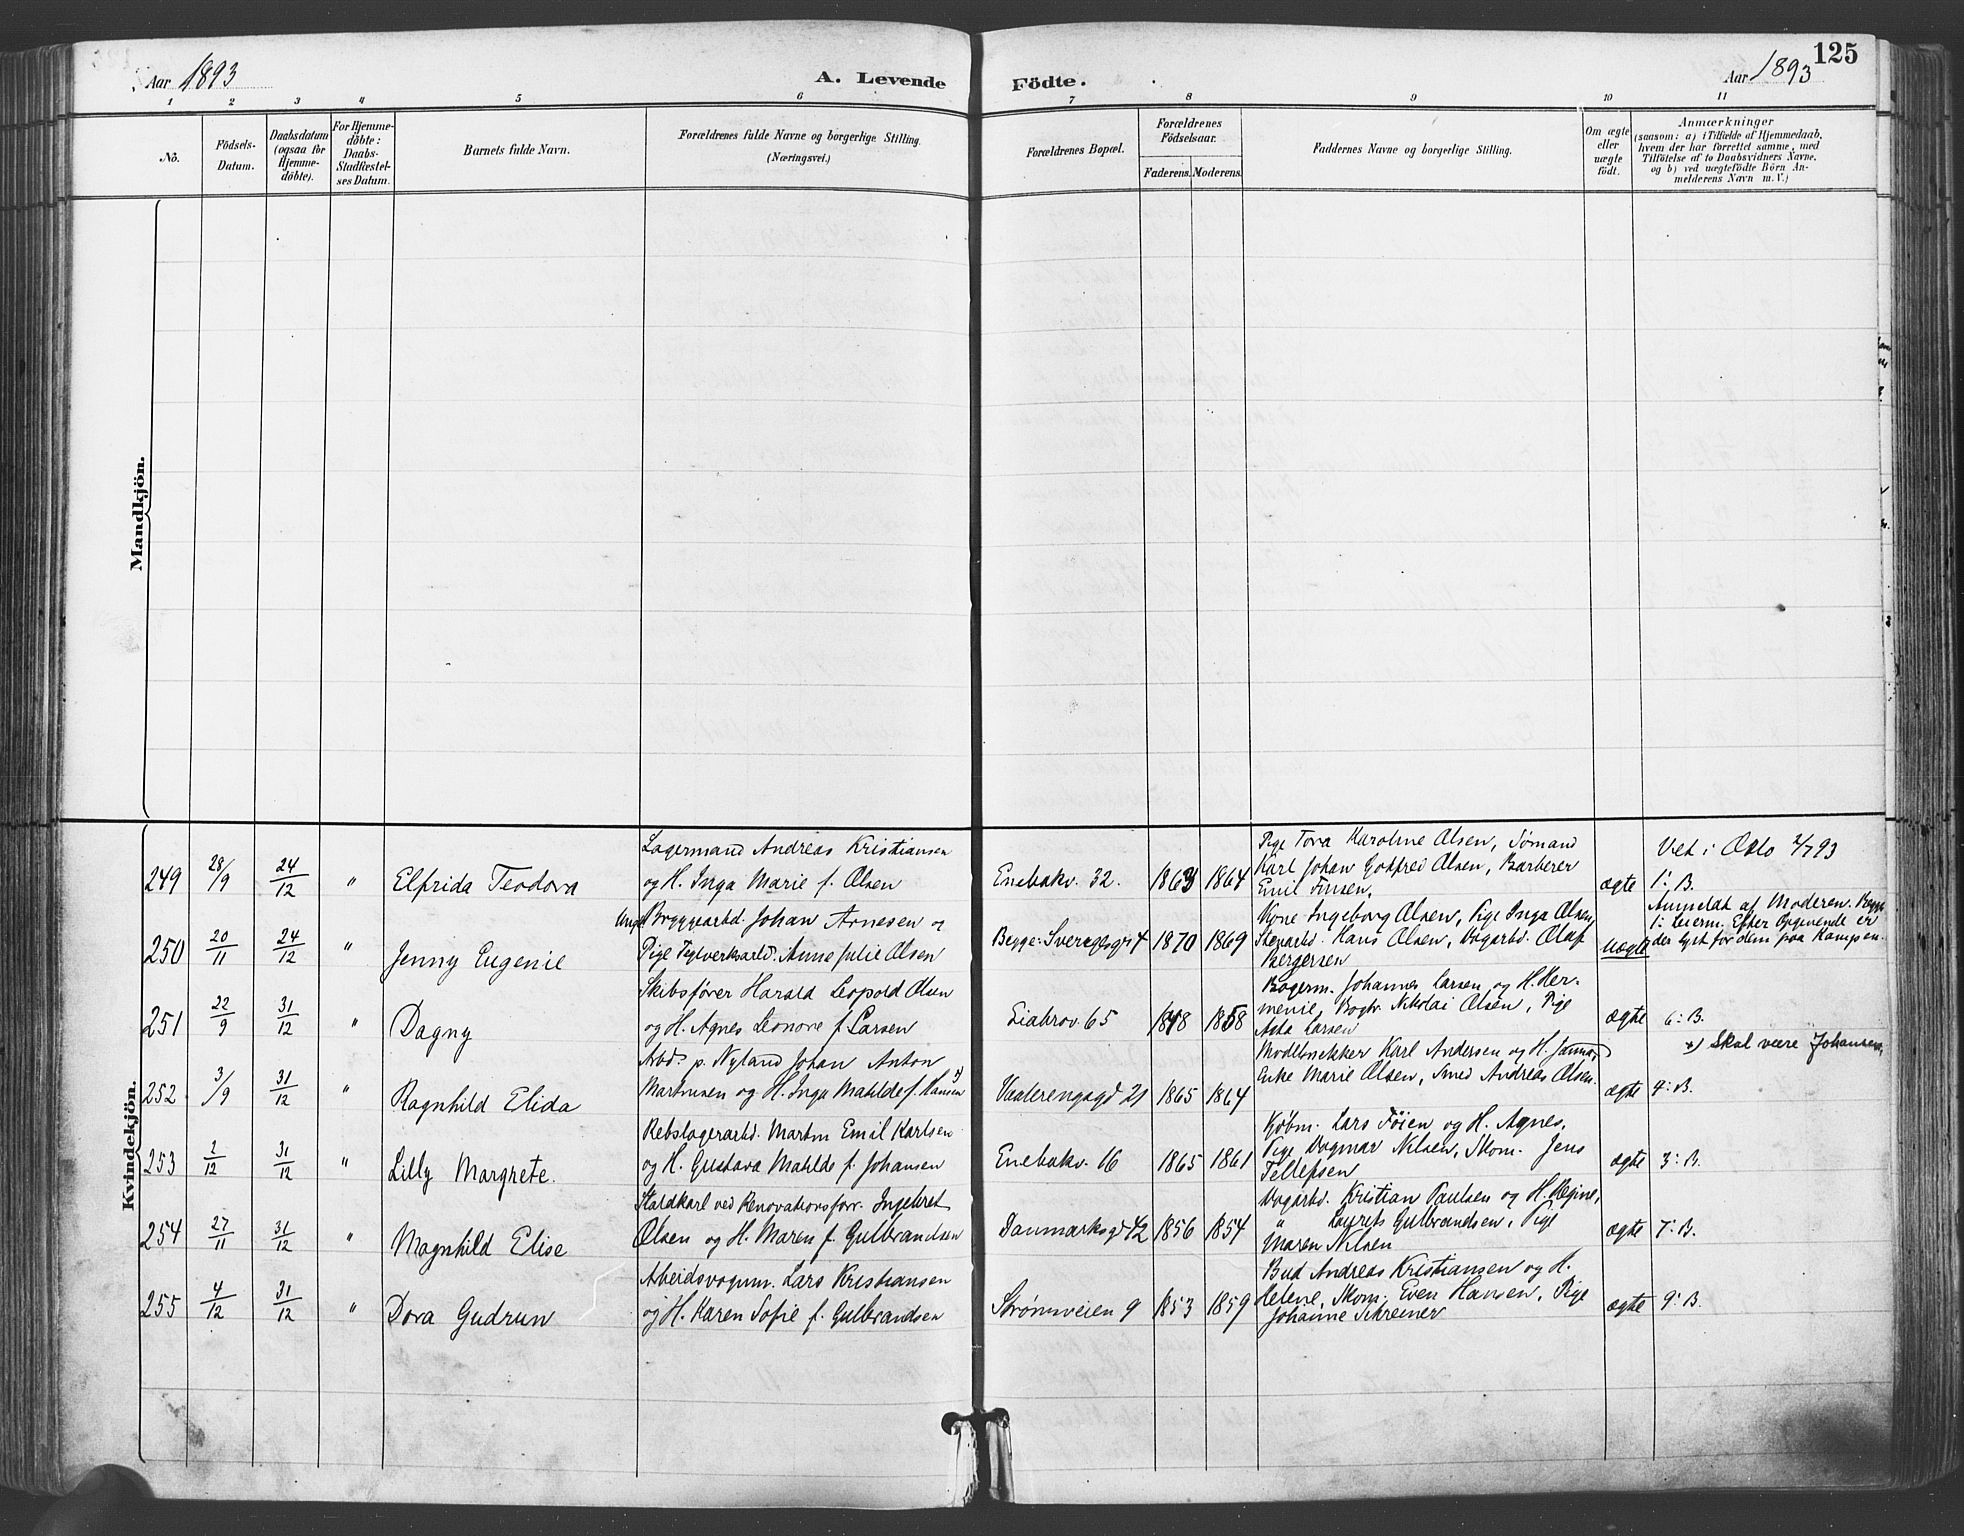 Aar 1893
A. Levende
Födte.
Aar 1893
125
1 2 3 4 5 6 7 8 9 10 11
No.
Födsels-
Datum.
Daabsdatum
(ogsaa for
Hjemme-
döbte).
For Hjemme-
döbte:
Daabs-
Stadfæstel-
ses Datum.
Barnets fulde Navn.
Forældrenes fulde Navne og borgerlige Stilling.
(Næringsvei.)
Forældrenes Bopæl.
Forældrenes
Födselsaar.
Faderens. Moderens.
Faddernes Navne og borgerlige Stilling.
Om ægte
eller
uægte
født.
Anmærkninger
(saasom: a) i Tilfælde af Hjemmedaab,
hvem der har forrettet samme, med
Tilföielse af to Daabsvidners Navne,
og b) ved uægtefödte Börn An-
melderens Navn m. V.)
Mandkjön.
Kvindekjön.
249 28/9 24/12 " Elfrida Teodora
Lagermand Andreas Kristiansen
og H. Inga Marie f. Olsen
Enebakv. 32. 1863 1864
Pige Tora Karoline Olsen, Sømand
Karl Johan Gotfred Olsen, Barberer
Emil Finsen.
ægte
Vet i Oslo 2/7 93
1: B.
250 20/11 24/12 " Jenny Eugenie
Ungk. Bryggearbd. Johan Arnesen og
Pige Teglverksarbd. Anne Julie Olsen
Begge: Sverigesgt 4 1870 1869
Kone Ingeborg Olsen, Pige Inga Olsen,
Stenarbd. Hans Olsen, Vogarbd. Olaf
Bergersen
uægte
Anmeldt af Moderen. Begge
1: Leierm. Efter Opgivende er
der lyst for dem paa Kampen.
251 22/9 31/12 " Dagny
Skibsfører Harald Leopold Olsen
og H. Agnes Leonore f. Larsen
Eiabrov. 65 1848 1858
Bogerm. Johannes Larsen og H. Her-
menie, Bogbr. Nikolai Olsen, Pige
Asta Larsen
ægte 6: B.
252 3/9 31/12 " Ragnhild Elida
Arbd. p. Nyland Johan Anton
Martinsen og H. Inga Matilde f. Hansen x)
Vaalerengagd 21 1865 1864
Modelsnekker Karl Andersen og H. Janna,
Enke Marie Olsen, Smed Andreas Olsen.
ægte 4: B.
x) Skal være Johansen.
253 2/12 31/12 " Lilly Margrete.
Rebslagerarbd. Martin Emil Karlsen
og H. Gustava Matilde f. Johansen
Enebakv. 16 1865 1861
Kjøbm. Lars Føien og H. Agnes,
Pige Dagmar Nilsen, Skom. Jens
Tellefsen
ægte 3: B.
254 27/11 31/12 " Magnhild Elise
Staldkarl ved Renovationsforr. Ingebret
Olsen og H. Maren f. Gulbrandsen
Danmarksgd 42 1856 1854
Vogarbd. Kristian Paulsen og H. Regine,
" Laurits Gulbrandsen, Pige
Maren Nilsen
ægte 7: B.
255 4/12 31/12 " Dora Gudrun
Arbeidsvognm. Lars Kristiansen
og H. Karen Sofie f. Gulbrandsen
Strømsveien 9 1853 1859
Bud Andreas Kristiansen og H.
Helene, Skom. Even Hansen, Pige
Johanne Schreiner
ægte 9: B.